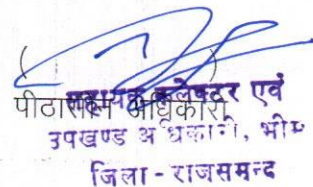 पीठासीन अधिकारी
सहायक कलेक्टर एवं
उपखण्ड अधिकारी, भीम
जिला - राजसमन्द